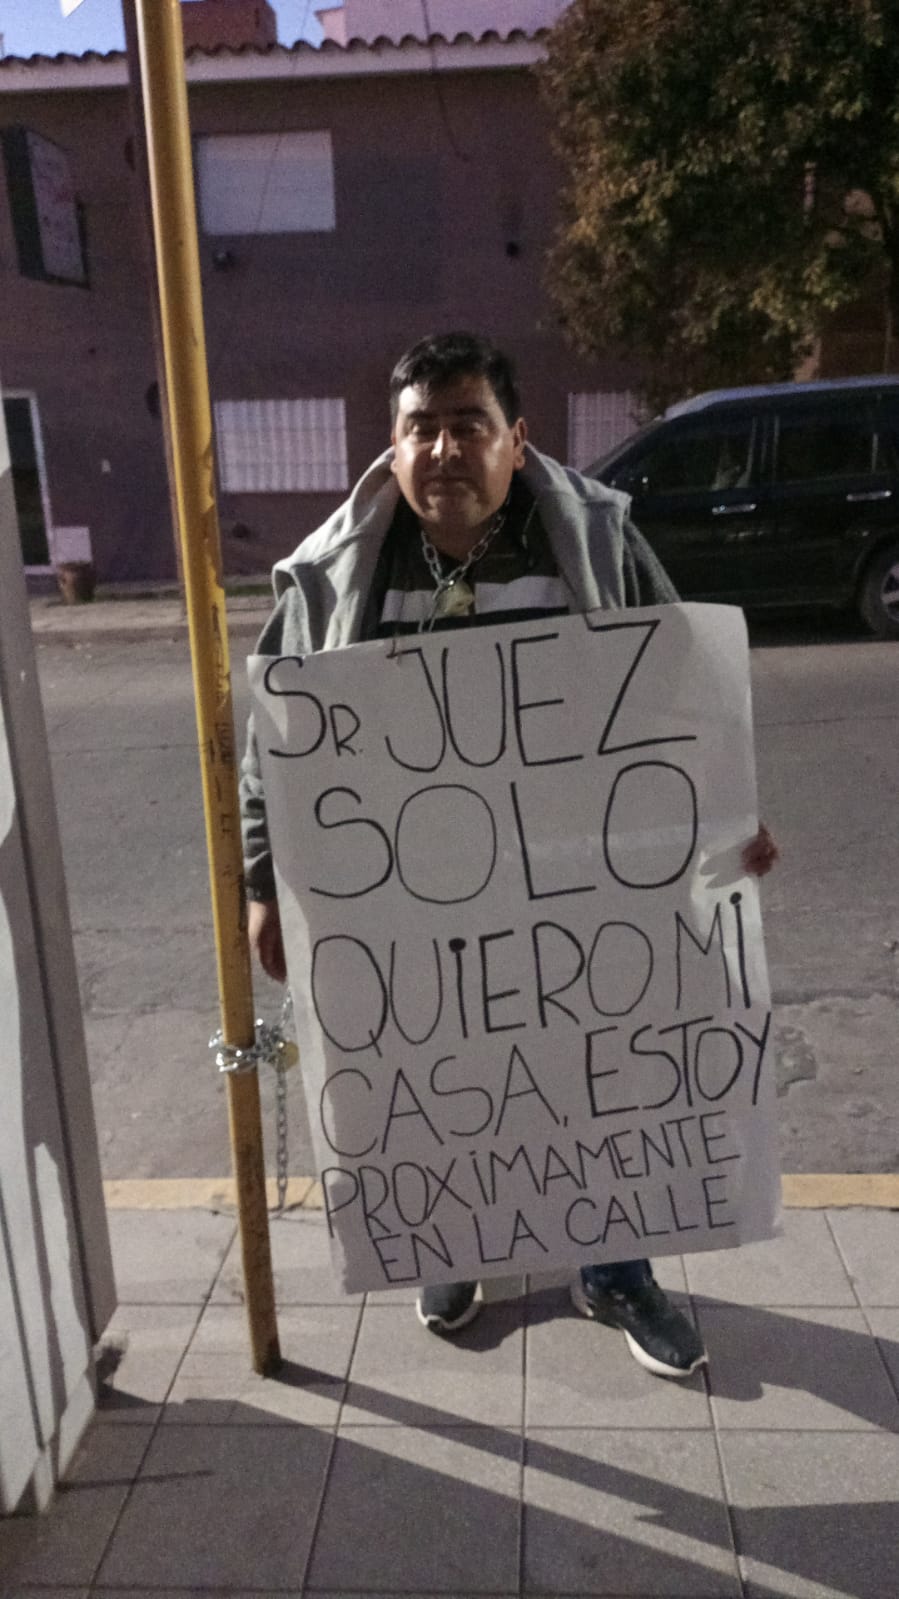 SR. JUEZ
SOLO
QUIERO Mi
CASA, ESTOY
PROXiMAMENTE
EN LA CALLE